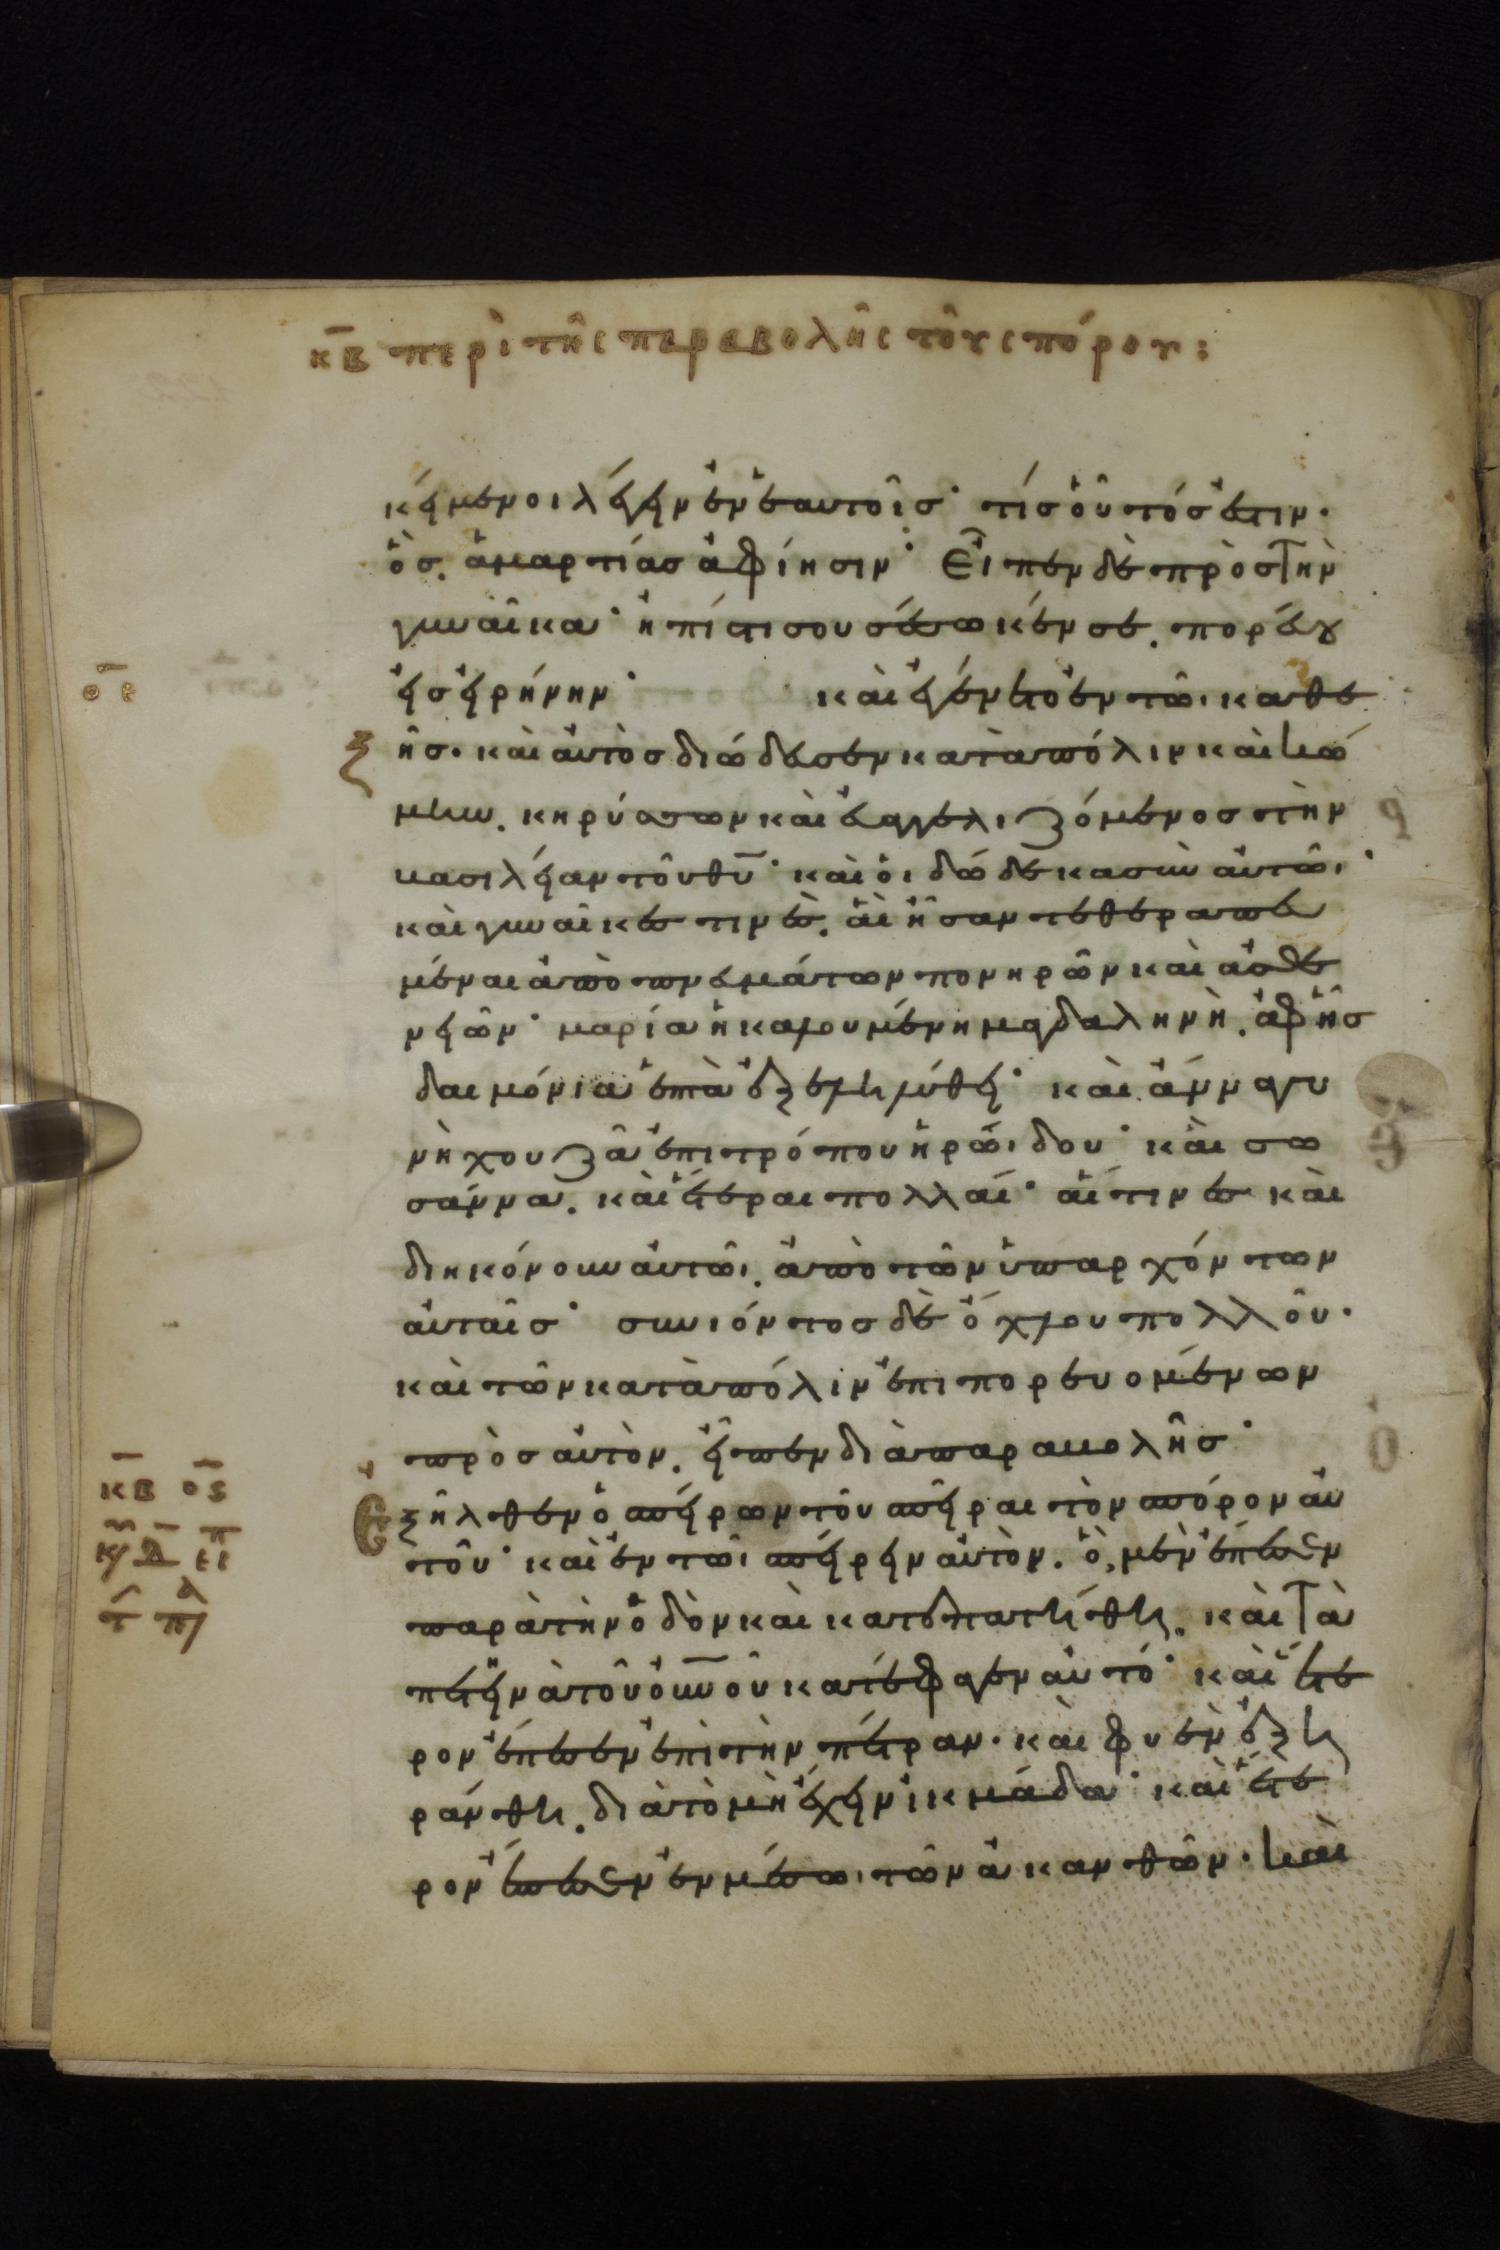 κβ περὶ τῆς παραβολῆς τοῦ σπόρου:
κείμενοι λέγειν ἐν ἑαυτοῖσ· τίσ οὗτόσ ἐστιν·
ὃσ. ἁμαρτίασ ἀφίησιν· Εἶπεν δὲ πρὸσ τὴν
γυναῖκα· ἡ πίστισ σου σέσωκέν σε. πορεύου
εἰσ εἰρήνην· καὶ ἐγένετο ἐν τῶι καθε
οε
ξῆσ. καὶ αὐτὸσ διώδευσεν κατὰ πόλιν καὶ κώ
μην. κηρύσσων καὶ εὐαγγελιζόμενοσ τὴν
βασιλείαν τοῦ θυ· καὶ οἱ δώδεκα σὺν αὐτῶι·
καὶ γυναῖκεσ τινὲσ. αἳ ἦσαν τεθεραπευ
μέναι ἀπὸ πνευμάτων πονηρῶν καὶ ἀσθε
νειῶν· μαρία ἡ καλουμένη μαγδαληνὴ. ἀφ ἧσ
δαιμόνια ἑπτὰ ἐξεληλύθει· καὶ ἄννα γυ
νὴ χουζᾶ ἐπιτρόπου ἡρώιδου· καὶ σω
σάννα. καὶ ἕτεραι πολλαί· αἵτινεσ καὶ
διηκόνουν αὐτῶι. ἀπὸ τῶν ὑπαρχόντων
αὐταῖσ· συνιόντοσ δὲ ὄχλου πολλοῦ·
καὶ τῶν κατὰ πόλιν ἐπιπορευομένων
πρὸσ αὐτὸν. εἶπεν διὰ παραβολῆσ·
κβ οϛ
Ἐξῆλθεν ὁ σπείρων τοῦ σπεῖραι τὸν σπόρον αὐ
τοῦ· καὶ ἐν τῶι σπείρειν αὐτὸν. ὃ, μὲν ἔπεσεν
παρὰ τὴν ὁδὸν καὶ κατεπατήθη. καὶ τὰ
πετεινὰ τοῦ οὐνοῦ κατέφαγεν αὐτό· καὶ ἕτε
ρον ἔπεσεν ἐπὶ τὴν πέτραν. καὶ φυὲν ἐξη
ράνθη. διὰ τὸ μὴ ἔχειν ἰκμάδα· καὶ ἕτε
ρον ἔπεσεν ἐν μέσωι τῶν ἀκανθῶν. καὶ